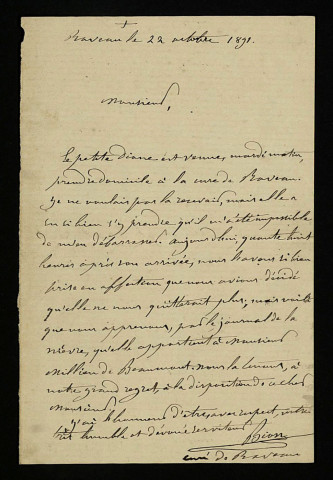 Raveau le 22 octobre 1891.
Monsieur,
La petite Diane est venue, mardi matin,
prendre domicile à la cure de Raveau.
Je ne voulais pas la recevoir, mais elle a
su si bien s'y prendre qu'il m'a été impossible
de m'en débarrasser. Aujourd'hui, quarante huit
heures après son arrivée, nous l'avons si bien
prise en affection que nous avions décidé
qu'elle ne nous quitterait plus; mais voilà
que nous apprenons, par le journal de la
Nièvre, qu'elle appartient à Monsieur
Millien de Beaumont. Nous la tenons, à
notre grand regret, à la disposition de ce cher
Monsieur.
J'ai l'honneur d'être, avec respect, votre
très humble et dévoué serviteur
curé de Raveau